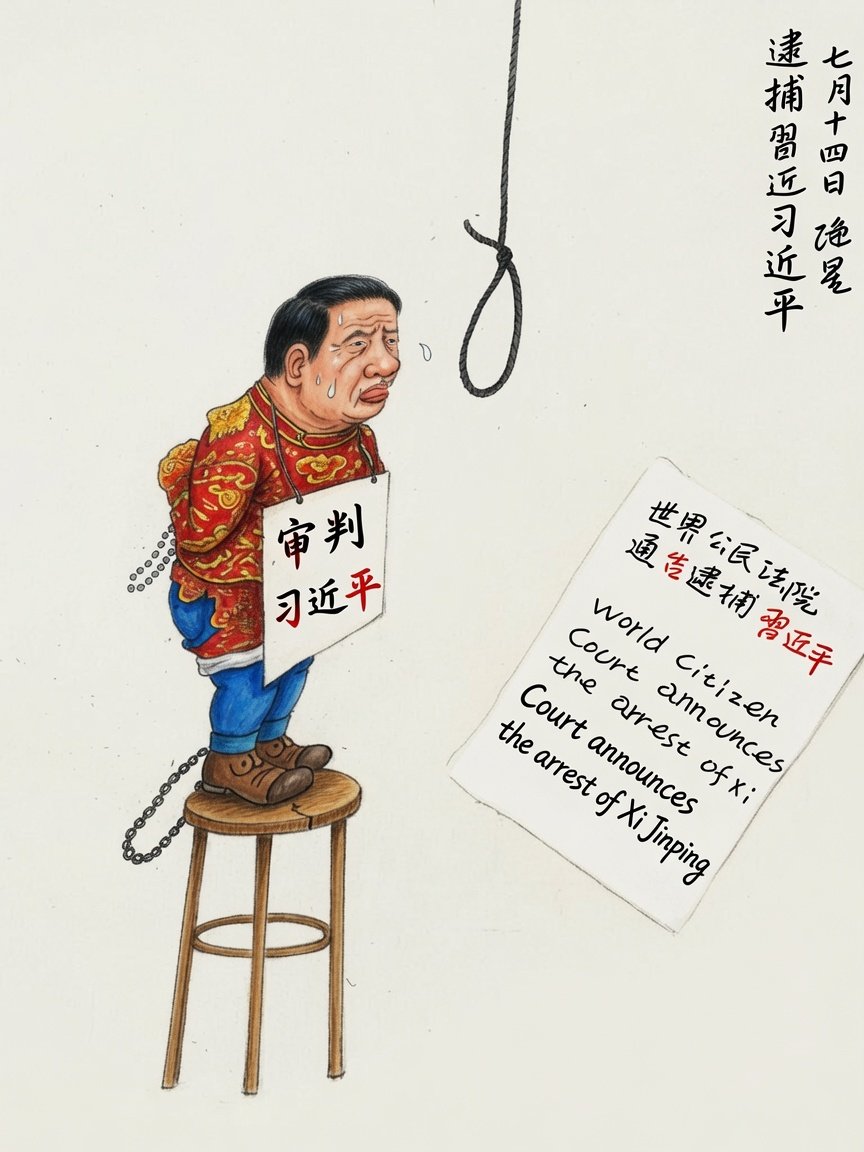 七月十四日
逮捕習近习近平
审判
习近平
世界公民法院
通告逮捕習近平
World Citizen
Court announces
the arrest of xi
Court announces
the arrest of Xi Jinping